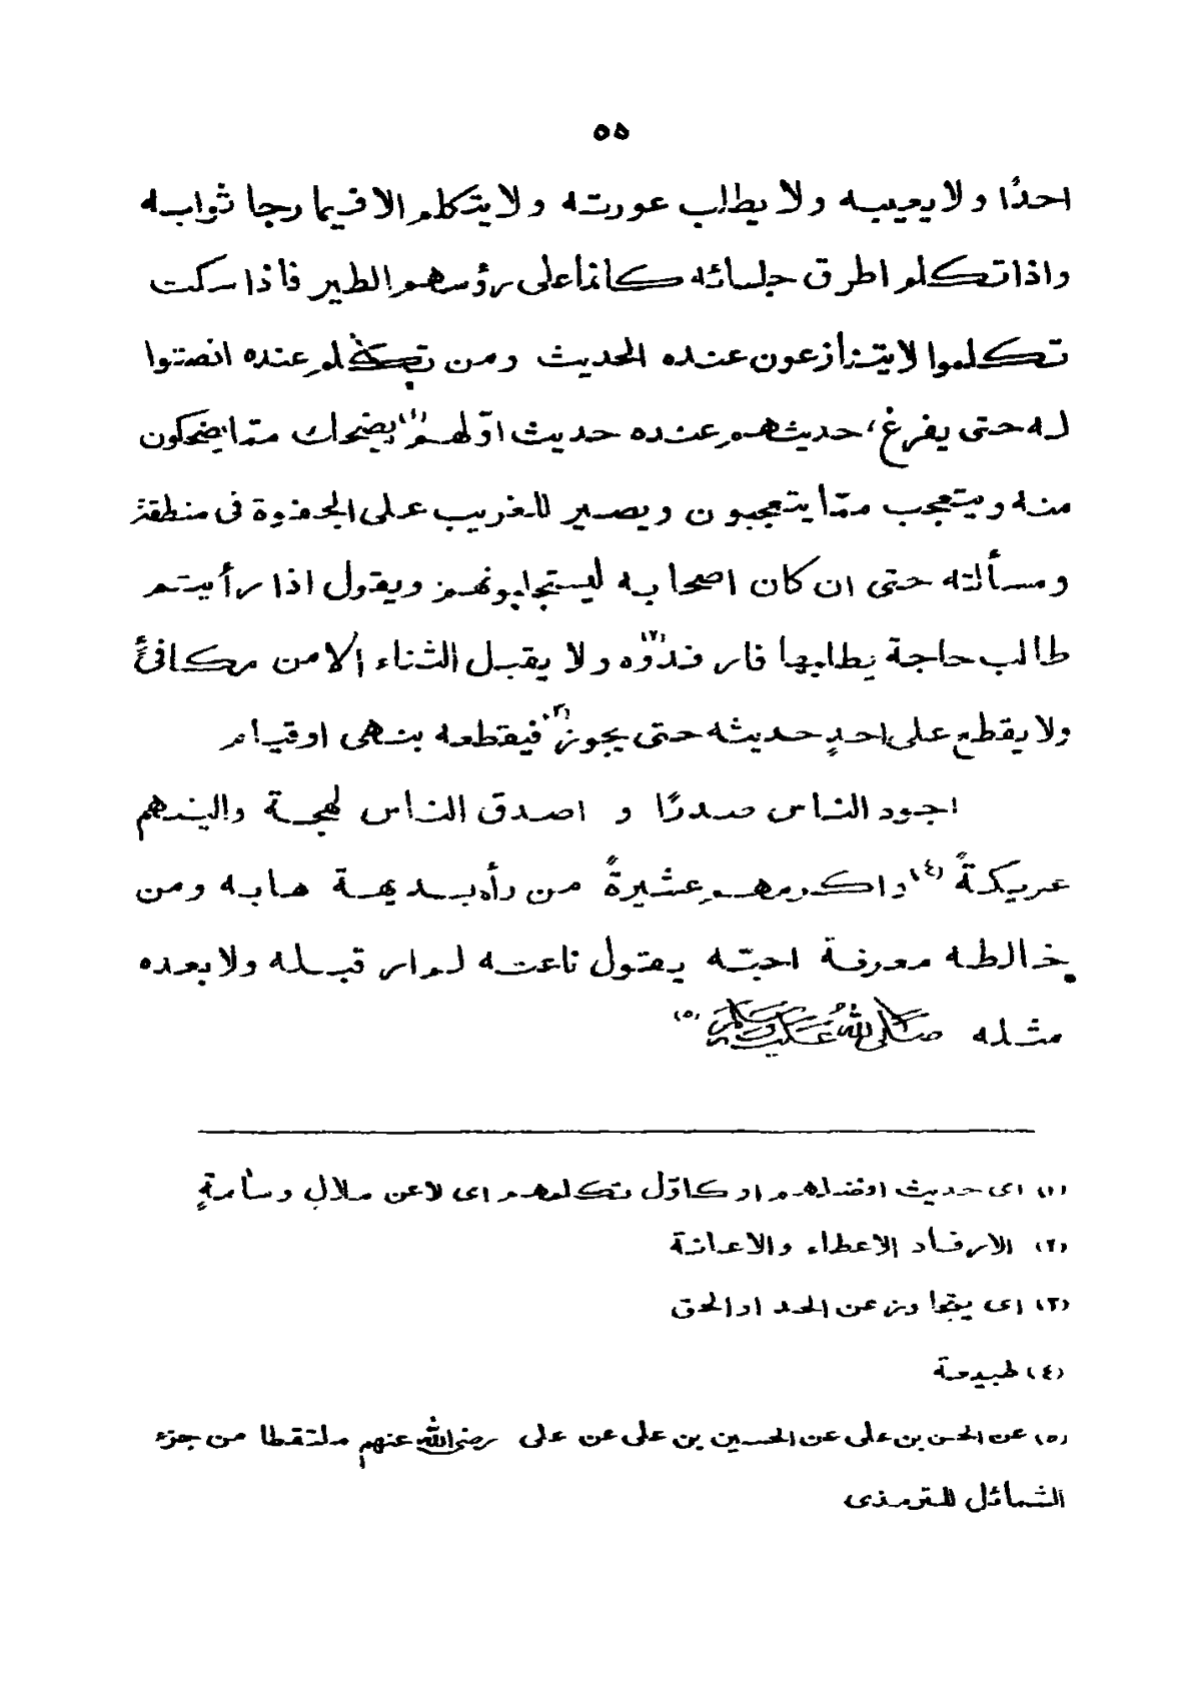 ٥٥
احدًا ولا يعيبه ولا يطلب عورته ولا يتكلم الا فيما رجا ثوابه
واذا تكلم اطرق جلسائه كانما على رؤسهم الطير فاذا سكت
تكلموا لا يتنازعون عنده الحديث ومن تكلم عنده انصتوا
له حتى يفرغ، حديثهم عنده حديث اوّلهم (١) يضحك ممّا يضحكون
منه ويتعجب ممّا يتعجبون ويصبر للغريب على الجفوة فى منطقة
ومسألته حتى ان كان اصحابه ليستجلبونهم ويقول اذا رأيتم
طالب حاجة يطلبها فارفدوه (٢) ولا يقبل الثناء الا من مكافئٍ
ولا يقطع على احدٍ حديثه حتى يجوز (٣) فيقطعه بنهى او قيام
اجود الناس صدرًا و اصدق الناس لهجة والينهم
عريكةً (٤) واكرمهم عشيرةً من رأه بديهة هابه ومن
خالطه معرفة احبّه يقول ناعته لم ار قبله ولا بعده
مثله صلى الله عليه وسلم (٥)
(١) اى حديث افضلهم او كاوّل تكلمهم اى لا عن ملالٍ وسأمةٍ
(٢) الارفاد الاعطاء والاعانة
(٣) اى يتجاوز عن الحد او الحق
(٤) طبيعة
(٥) عن الحسن بن على عن الحسين بن على عن على رضى الله عنهم ملتقطا من جزء
الشمائل للترمذى